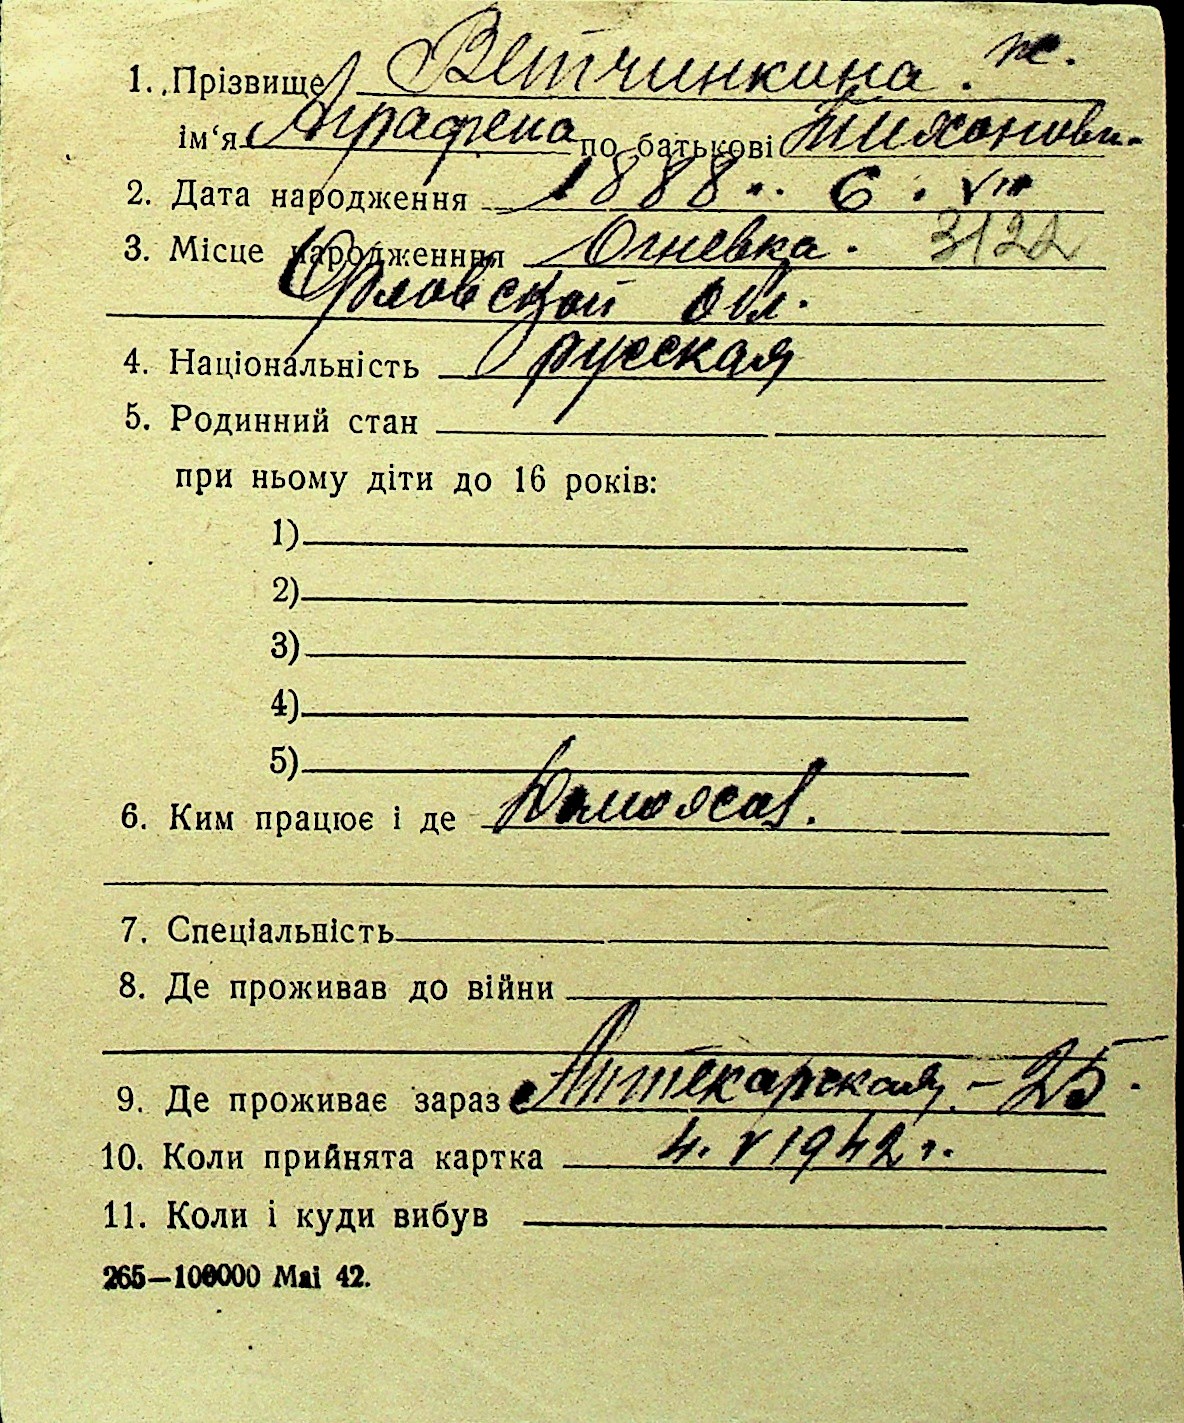 1. Прізвище Ветчинкина. ж.
ім‘я Аграфена по батькові Тихонови.
2. Дата народження 1888.. 6. VIII
3. Місце народженння Огневка. 3122
Орловской обл.
4. Національність русская
5. Родинний стан
при ньому діти до 16 років:
1)
2)
3)
4)
5)
6. Ким працює і де
7. Спеціальність
8. Де проживав до війни
9. Де проживає зараз Аптекарская, – 25.
10. Коли прийнята картка 4. V 1942 г.
11. Коли і куди вибув
265—100000 Mai 42.